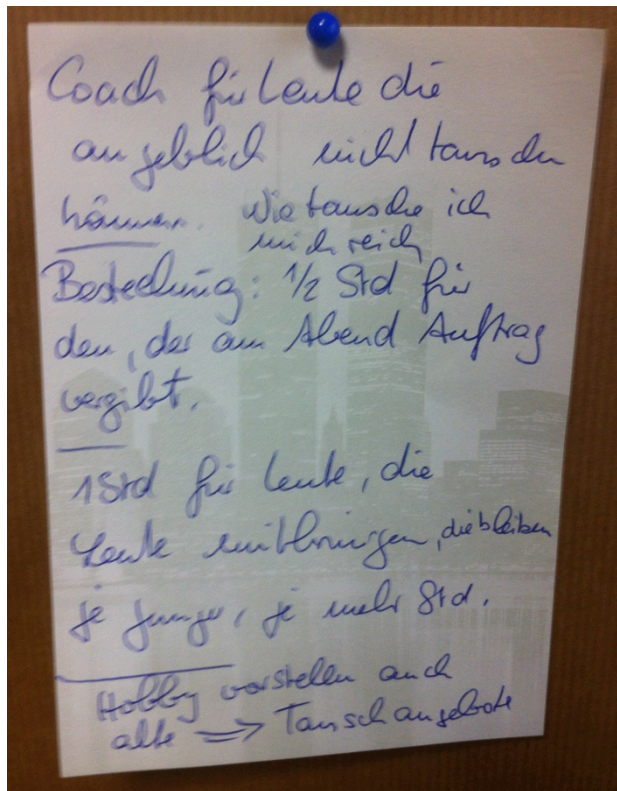 Coach für Leute die
angeblich nicht tauschen
können. Wie tausche ich
mich reich
Bestechung: 1/2 Std für
den, der am Abend Auftrag
vergibt.
1 Std für Leute, die
Leute mitbringen, die bleiben
je junger, je mehr Std.
Hobby vorstellen auch
alte => Tauschangebote